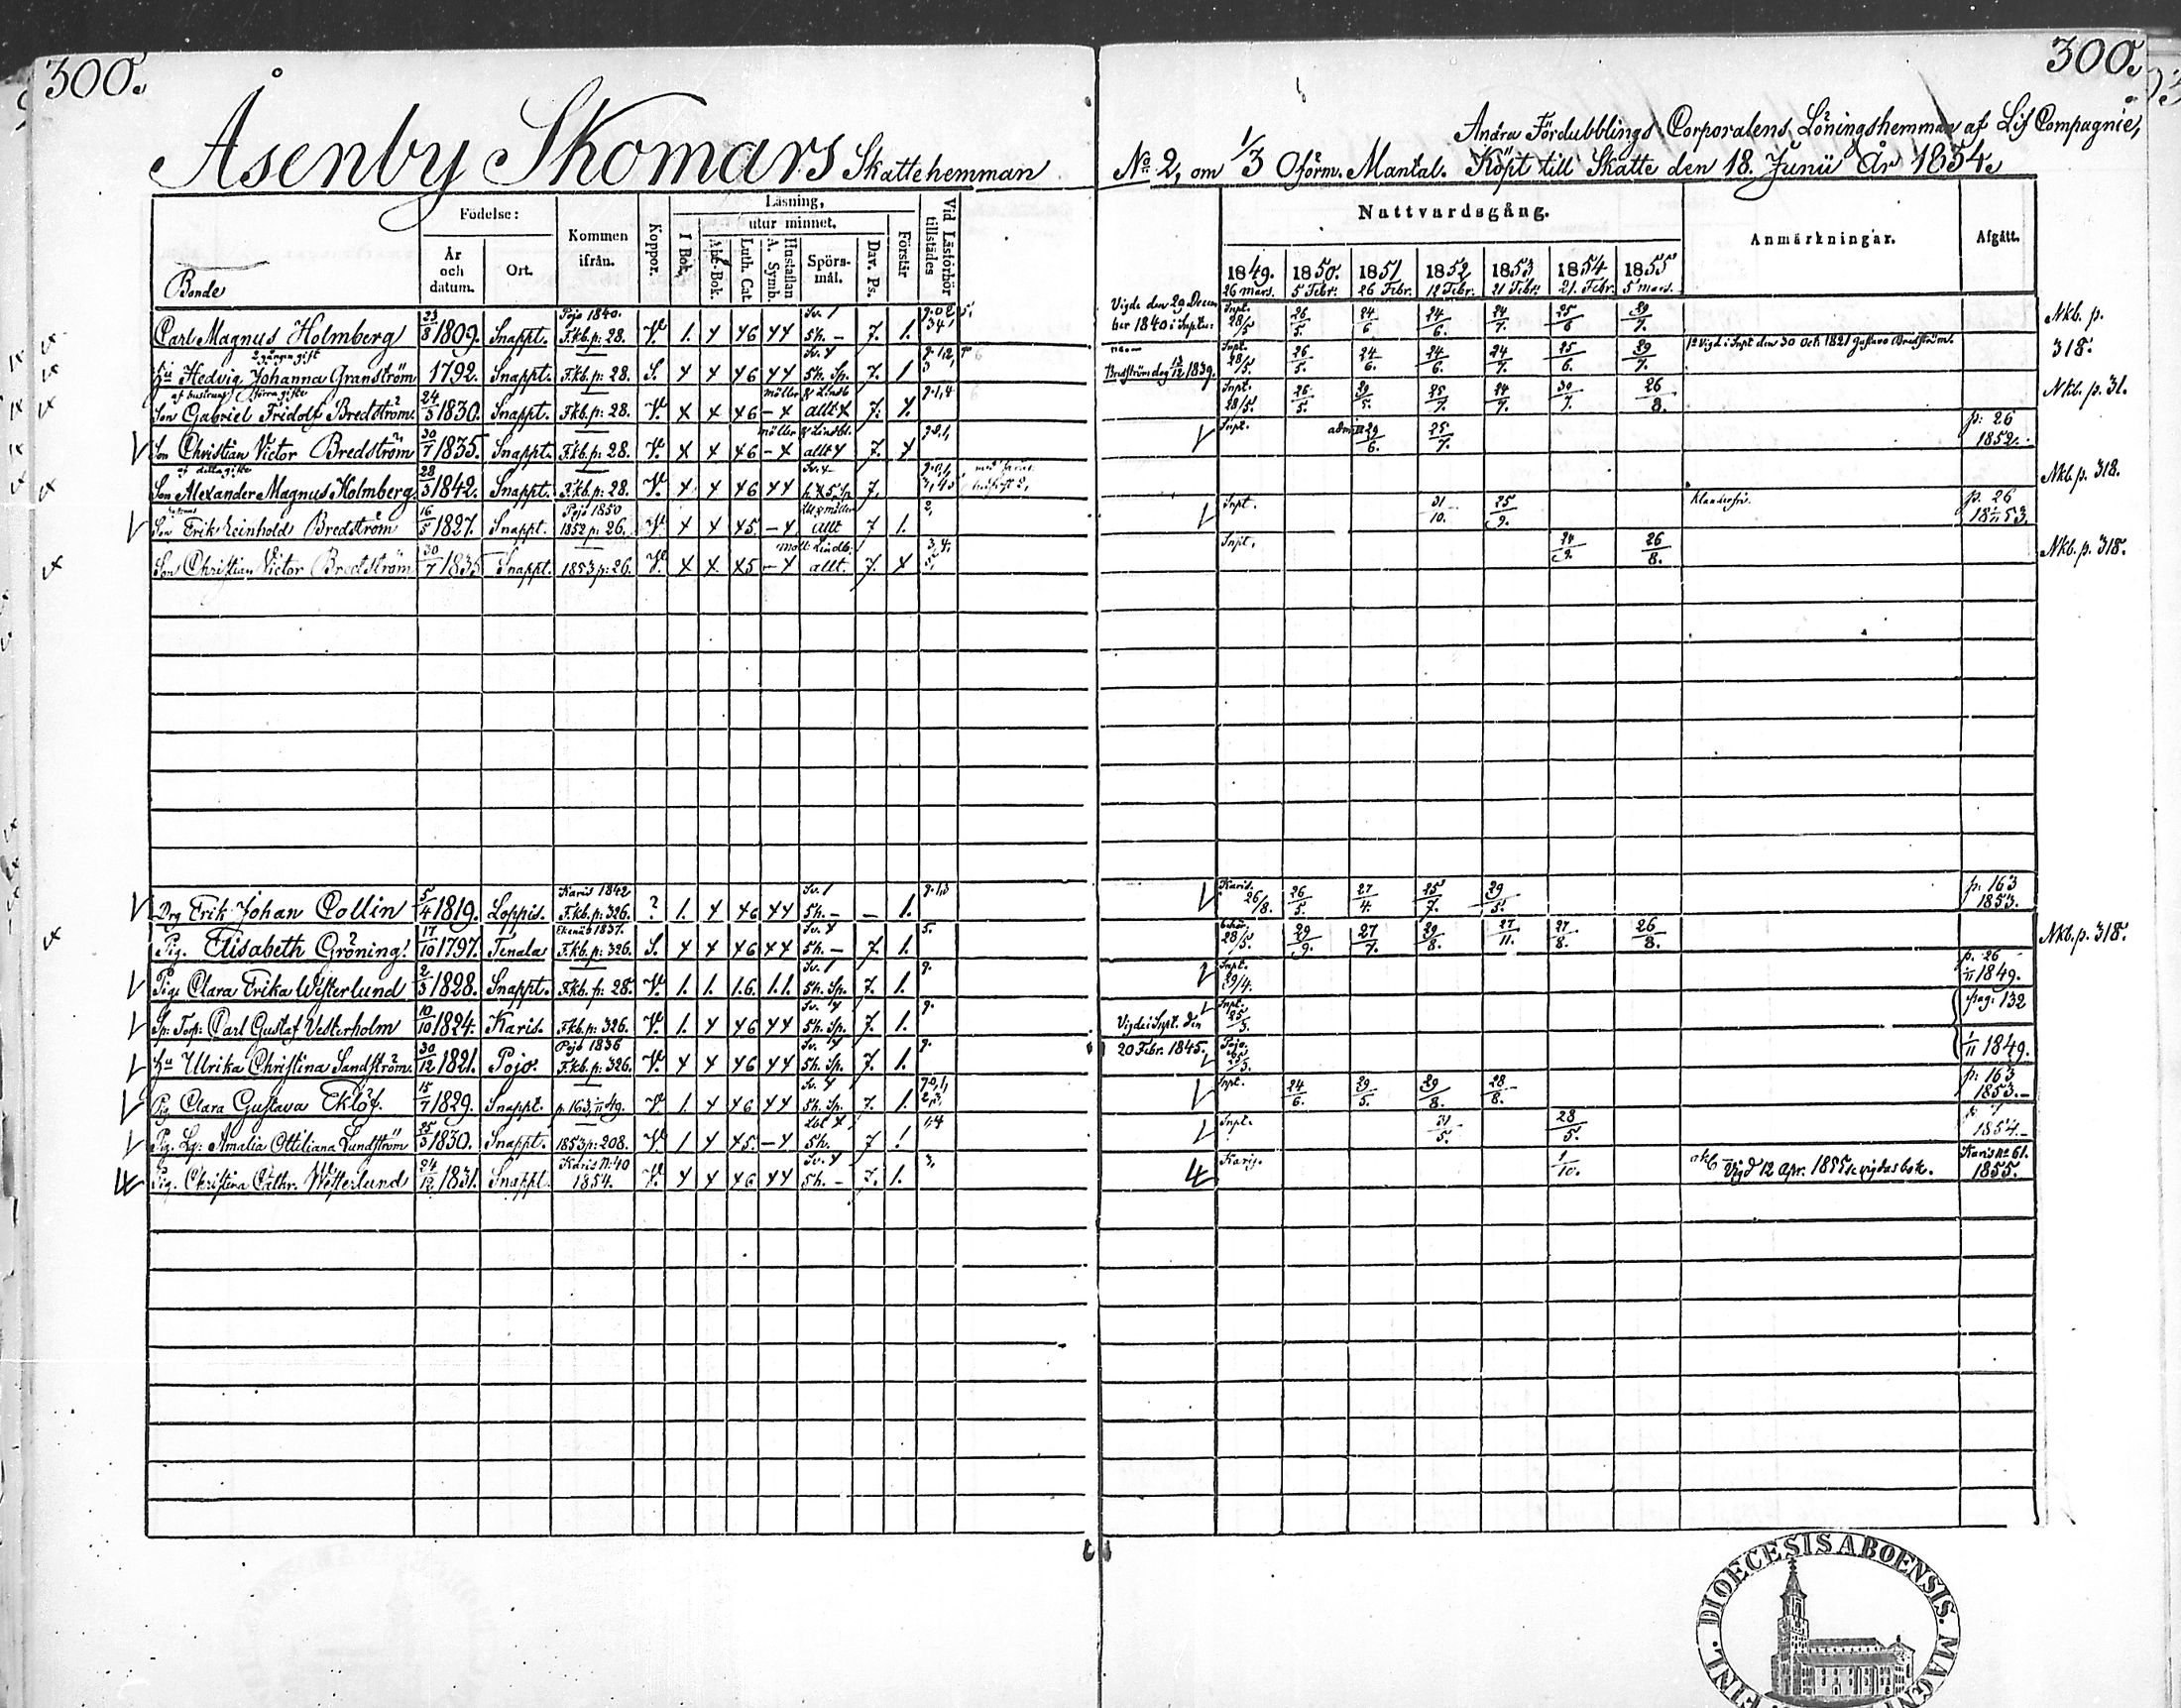 300.
300.
Andra Fördubblings Corporalens Löningshemman af Lif Compagnie,
Åsenby Skomars Skattehemman No 2, om 1/3 Oförm. Mantal. Köpt till Skatte den 18. Junii År 1854.
Bonde
Födelse:
År och datum.
Ort.
Kommen ifrån.
Koppor.
Läsning,
I Bok.
utur minnet.
Abc-Bok.
Luth. Cat.
Hustaflan A. Symb.
Spörsmål.
Dav. Ps.
Förstår
Vid Läsförhör tillstädes
Nattvardsgång.
1849. 26 mars.
1850. 5 Febr.
1851 26 Febr.
1852 12 Febr.
1853 21 Febr.
1854 21. Febr.
1855 5 mars.
Anmärkningar.
Afgått.
Carl Magnus Holmberg 23/8 1809. Snappt. Pojo 1840. F.kb. p: 28. V. 1. 5h. - 7. 1. Vigde den 29 December 1840 i Snptu: Snpt. 28/5 26/5. 24/6 24/6. 24/7. 25/6 29/7. Nkb. p. 318.
2 gången gift
Hu Hedvig Johanna Granström 1792. Snappt. F.kb. p: 28. S. 5h. Sp. 7. 1 Bredström dog 13/12 1839. Snpt. 28/5. 26/5. 24/6. 24/6. 24/7. 25/6. 29/7. 1o Vigd i Snpt den 30 Och 1821 Gustavo Bredström.
af hustruns förra gifte
Son Gabriel Fridolf Bredström. 24/3 1830. Snappt. F.kb. p: 28. V. allt 7. Snpt. 28/5. 26/5. 29/5. 25/7. 24/7. 30/7. 26/8. Nkb. p. 31.
Son Christian Victor Bredström 30/7 1835. Snappt. F.kb. p: 28. V. allt 7. Snpt. 29/6. 25/7. p: 26 1852.
af detta gifte
Son Alexander Magnus Holmberg. 28/3 1842. Snappt. F.kb. p: 28. V. 7. Nkb. p. 318.
Son Erik Reinhold Bredström 16/5 1827. Snappt. Pojo 1850 1852 p: 26. V. allt 7 1. Snpt. 31/10. 25/9. Klanderfri. p. 26 1853.
Son Christian Victor Bredström 30/7 1835 Snappt. 1853 p: 26. V. allt. 7. Snpt. 24/9. 26/8. Nkb. p. 318.
Drg Erik Johan Collin 5/4 1819. Loppis. Karis 1842 F.kb. p: 326. ? 1. 5h. - - 1. Karis. 26/8. 26/5. 27/4. 25/7. 29/5. p. 163 1853.
Pig. Elisabeth Gröning. 17/10 1797. Tenala Ekenäs 1837. F.kb. p: 326. S. 5h. - 7. 1. 5. 28/5. 29/9. 27/7. 29/8. 27/11. 27/8. 26/8. Nkb. p. 318.
Pig. Clara Erika Westerlund 2/3 1828. Snappt. F.kb. p: 28. V. 1. 1. 1.6. 1.1. 5h. Sp. 7. 1. Snpt. 29/4. p. 26 1/11 1849.
Sp: Torp: Carl Gustaf Vesterholm 10/10 1824. Karis. F.kb. p: 326. V. 1. 5h. Sp. 7. 1. Vigde i Snpt. den 20 Febr. 1845. Snpt. 25/3. pag: 132
Hu Ulrika Christina Sandström. 30/12 1821. Pojo. Pojo 1836 F.kb. p: 326. V. 5h. Sp. 7. 1. Pojo. 25/3. 1/11 1849.
Pig Clara Gustava Eklöf. 15/7 1829. Snappt. p. 163 1/11 49. V. 1. 5h. Sp. 7. 1. Snpt. 24/6. 29/5. 29/8. 28/8. p: 163 1853.
Pig. Amalia Ottiliana Lundström 25/3 1830. Snappt. 1853 p: 208. V. 1 5h. 7 1. Snpt. 31/5. 28/5. 1854.
Pig. Christina Cathr. Westerlund 24/12 1831. Snappt. Karis N: 40 1854. V. 5h. - 7. 1. 3. Karis. 1/10. Vigd 12 Apr. 1855 Karis No 61. 1855.
FINL. DIOECESIS ABOENSIS. MAGNI